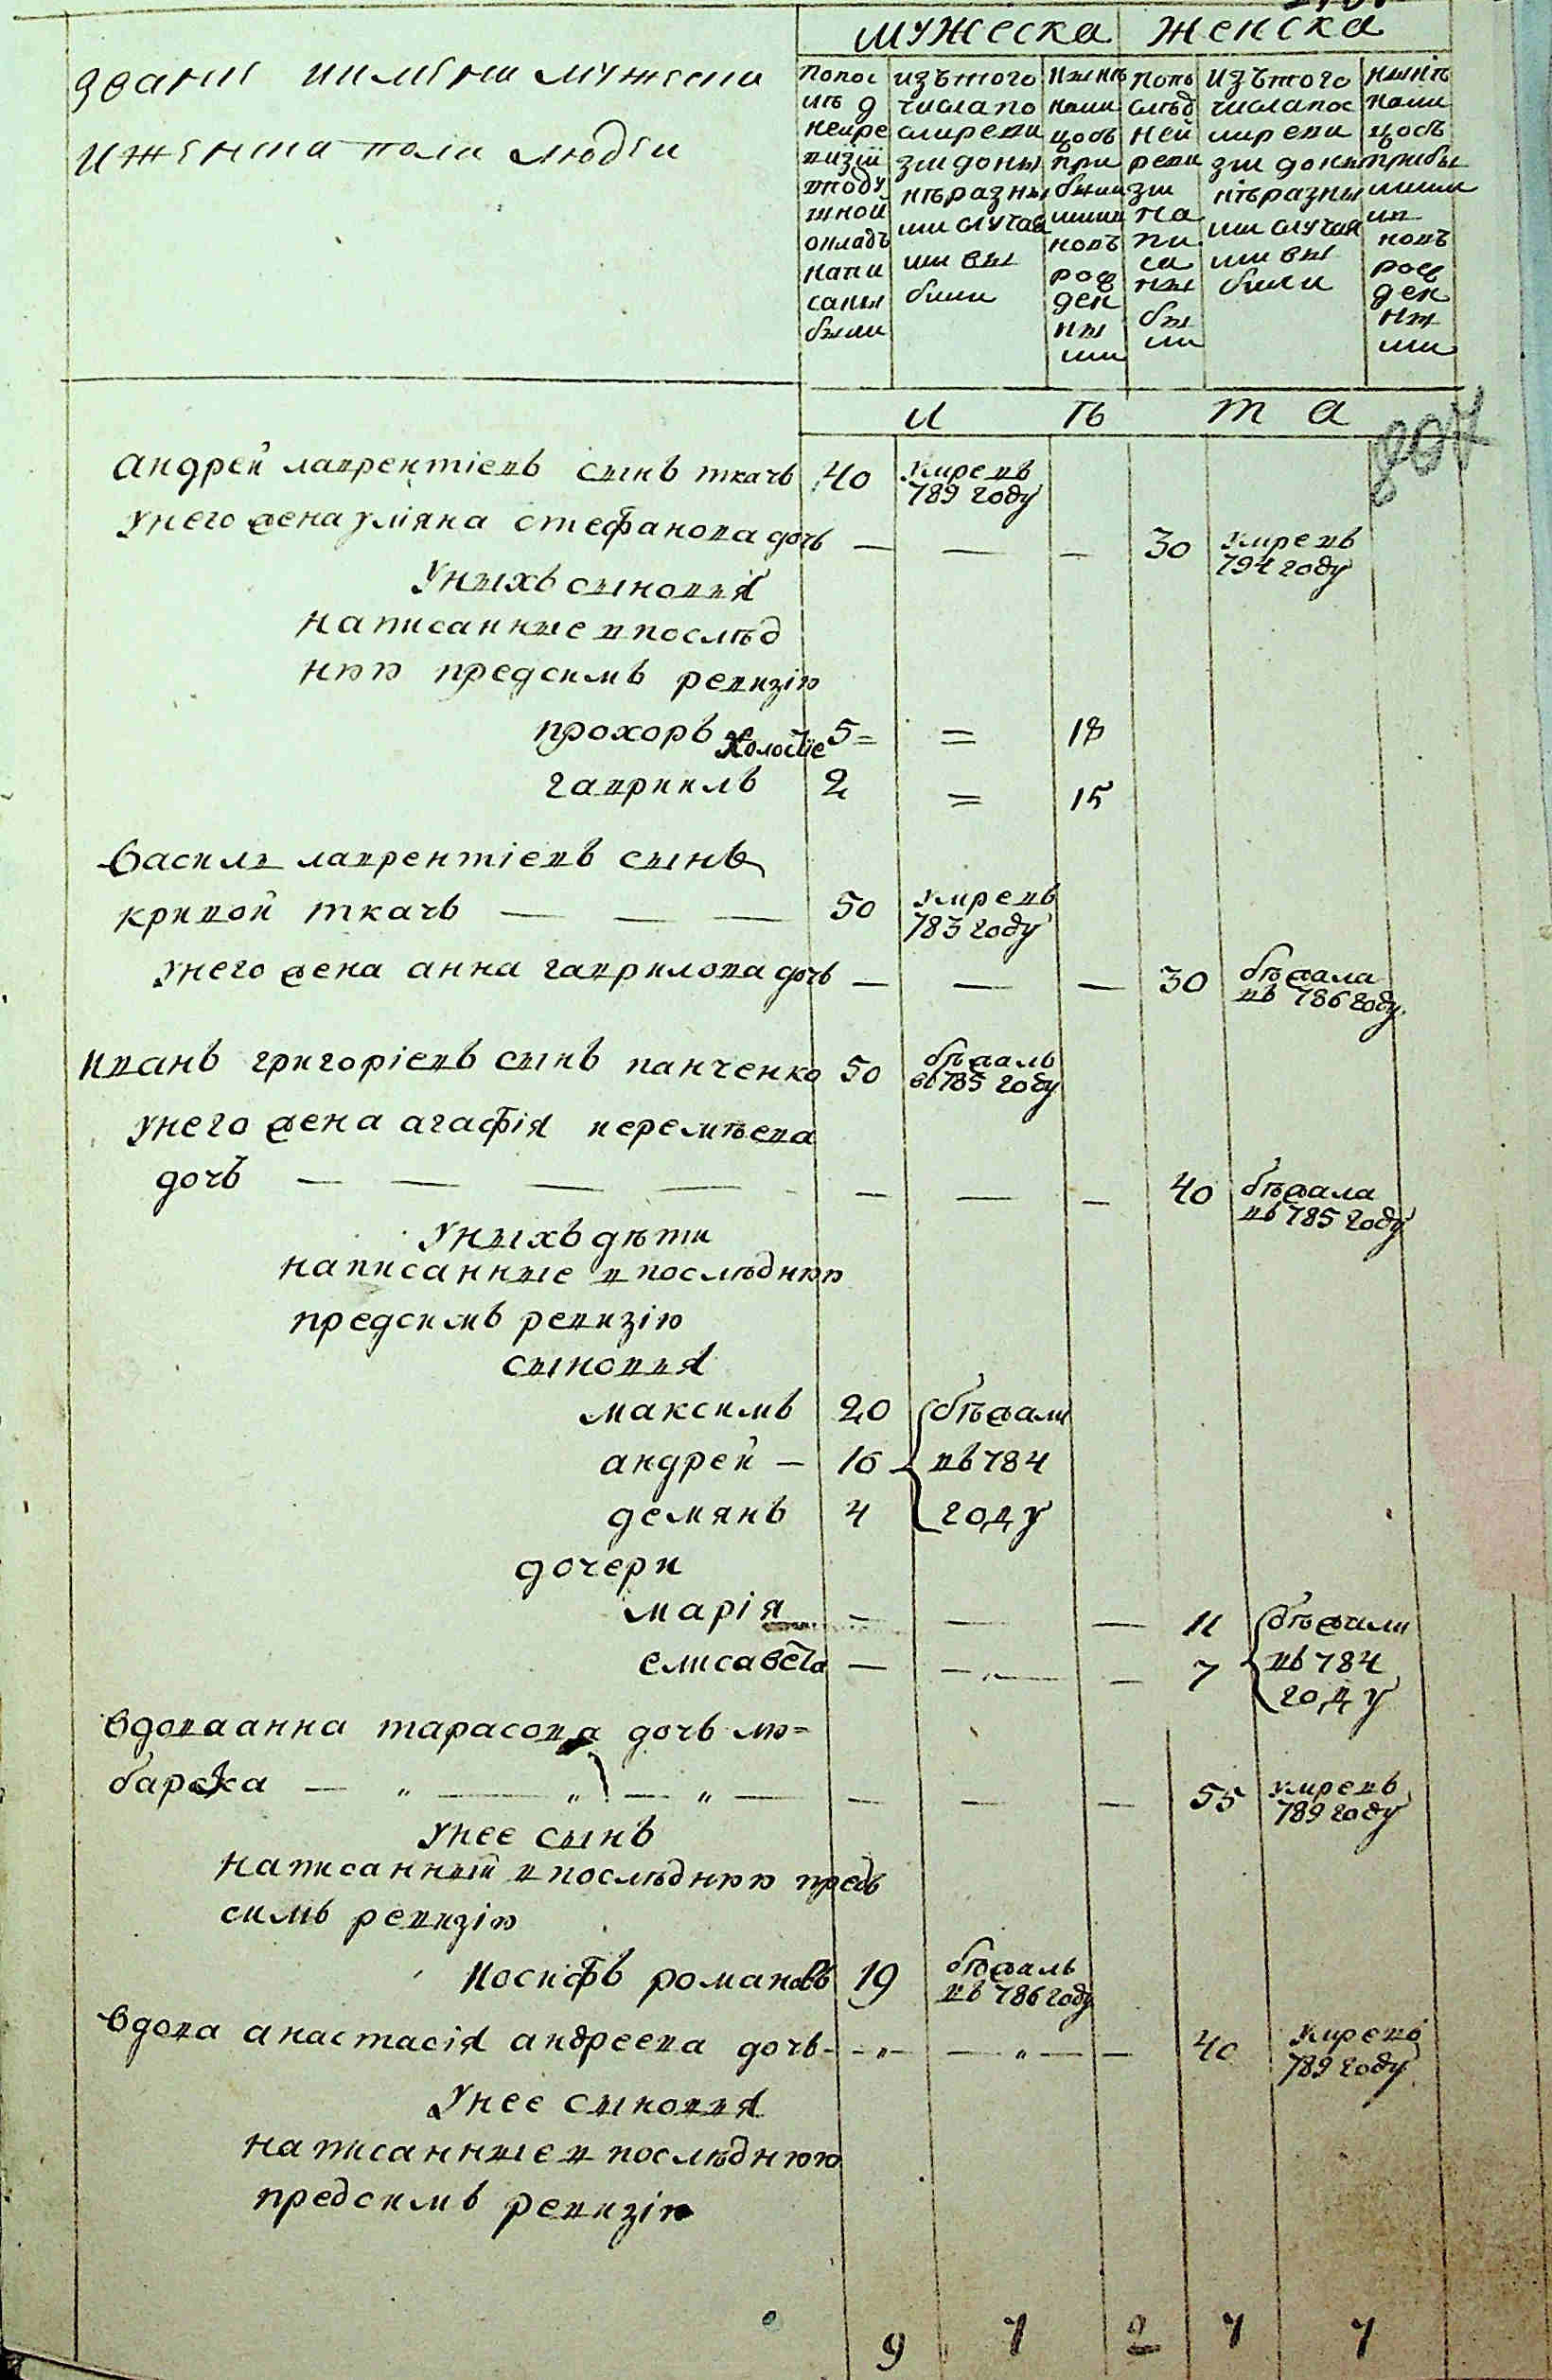 мужеска женска
званіе иимѣна мужеска
иженска пола людеи
попос
лѣд
ней ре
визіи
вподу
шной
окладъ
напи
саны
были
изътого
числа по
слиреви
зіи доны
нѣ разны
ми случая
ми вы
были
нынѣ
нали
цось
при
бывши
ми и
новъ
рож
ден
ны
ми
попо
слѣд
ней
реви
зіи
на
пи
са
ны
бы
ли
изътого
числа пос
ли реви
зіи доны
нѣ разны
ми случая
ми вы
были
нынѣ
нали
цось
прибы
шими
ив
новъ
рож
ден
ны
ми
лѣта
андрей лаврентіевъ сынъ ткачъ 40 умре въ 789 году
унего жена уліяна стефанова дочь — — — 30 умре въ 794 году
унихъ сыновя
написанные впослѣд
нюю предсимъ ревизію
прохоръ холостіе 5 = = 18
гавриилъ 2 = 15
василъ лаврентіевъ сынъ
кривой ткачъ — — — 50 умре въ 783 году
унего жена анна гаврилова дочь — — — 30 бѣжала въ 786 году
иванъ григоріевъ сынъ панченко 50 бѣжалъ въ 785 году
унего жена агафія иеремѣева
дочъ — — — — — — — 40 бѣжала въ 785 году
унихъ дѣти
написанные впослѣднюю
предсимъ ревизію
сыновя
максимъ 20 бѣжали
андрей — 16 въ 784
демянъ 4 году
дочери
марія — — — 11 бѣжали
елисавета — — — 7 въ 784
году
вдова анна тарасова дочь лю=
барска — „ — „ — „ — — — — 55 умре въ 789 году
унее сынъ
написанный впослѣднюю предъ
симъ ревизію
иосифъ романовъ 19 бѣжалъ въ 786 году
вдова анастасія андреева дочь - - „ - — „ — — 40 умре въ 789 году
унее сыновя
написанные впослѣднюю
предсимъ ревизію
9 7 2 7 7